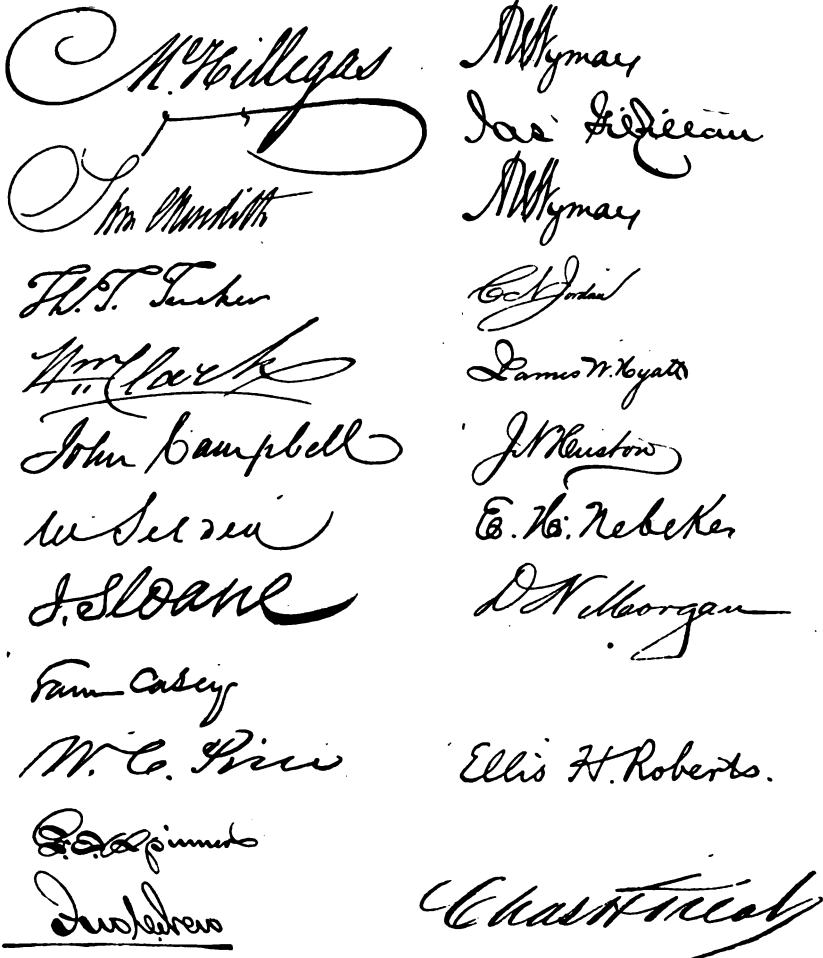 M. Hillegas
Sam Meredith
Th. T. Tucker
Wm Clark
John Campbell
W Selden
J. Sloane
Sam Casey
W. C. Price
F. E. Spinner
Jno. C. New
A U Wyman
Jas Gilfillan
A U Wyman
C N Jordan
James W. Hyatt
J N Huston
E. H. Nebeker
D N Morgan
Ellis H. Roberts.
Chas H Treat